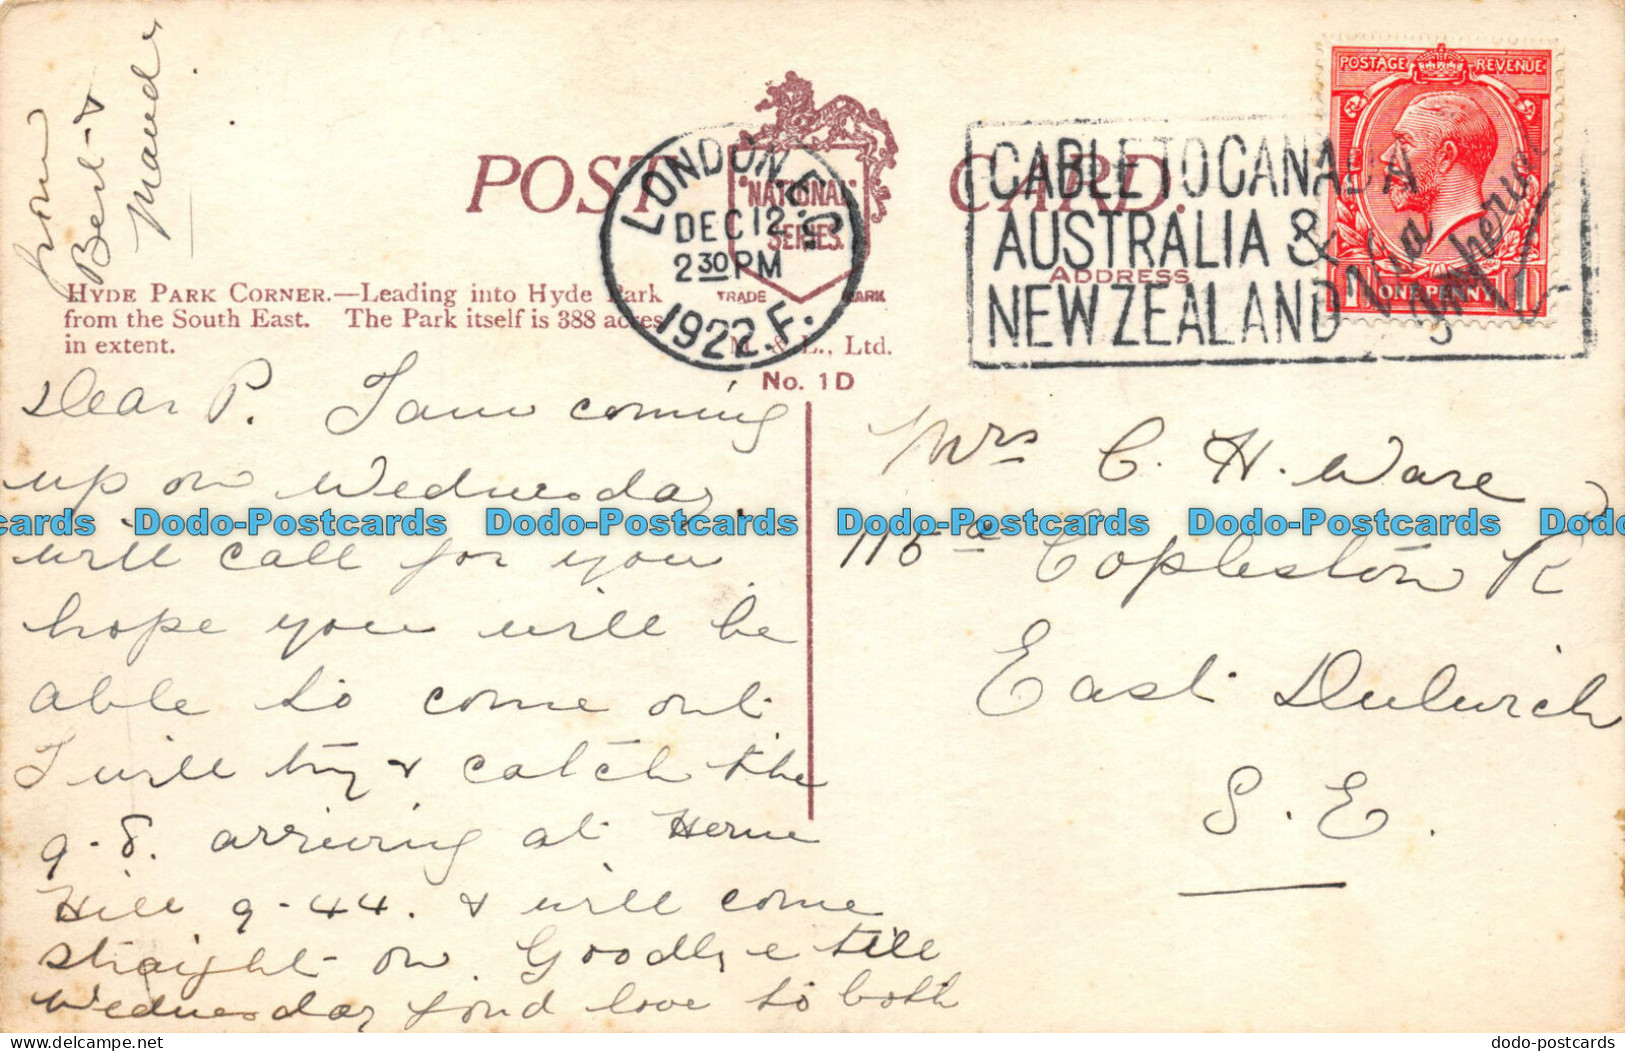 from
Bert &
Maud
POST CARD.
NATIONAL
SERIES.
TRADE MARK
M. & L., Ltd.
No. 1D
ADDRESS
HYDE PARK CORNER.—Leading into Hyde Park
from the South East. The Park itself is 388 acres
in extent.
LONDON. E.C.
DEC 12
2 30 PM
1922. F.
CABLE TO CANADA
AUSTRALIA &
NEW ZEALAND
Via
Imperial
POSTAGE REVENUE
ONE PENNY
Dear P. I am coming
up on Wednesday.
will call for you
hope you will be
able to come out.
I will try & catch the
9-8. arriving at Herne
Hill 9-44. & will come
straight on. Goodbye till
Wednesday fond love to both
Mrs C. H. Ware
115a Copleston R
East Dulwich
S. E.
cards Dodo-Postcards Dodo-Postcards Dodo-Postcards Dodo-Postcards Dodo
www.delcampe.net
dodo-postcards